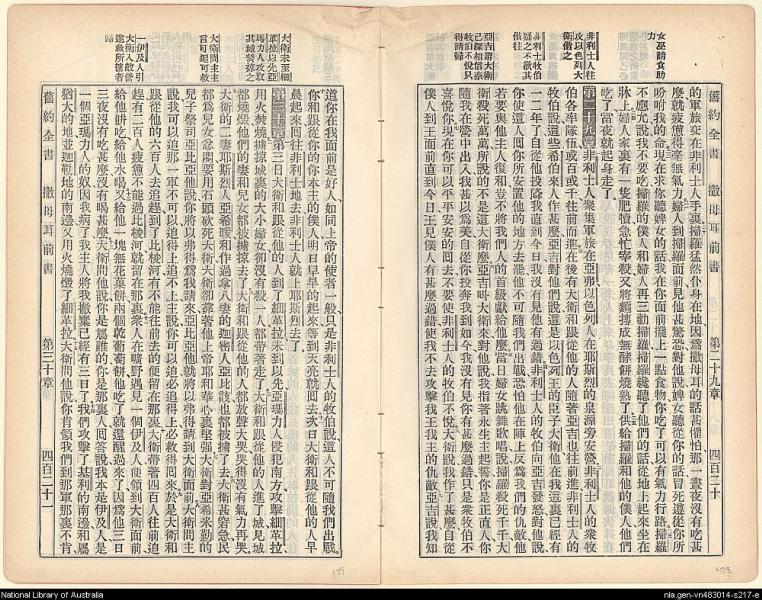 舊約全書 撒母耳前書 第二十九章 四百二十
女巫請食助力
非利士人往攻以色列大衛偕之
非利士牧伯疑之不欲其偕往
亞吉謂大衛
的軍旅交在非利士人手裏掃羅猛然仆身在地因爲撒母耳的話甚懼怕那一晝夜沒有吃甚
麼就疲憊得毫無氣力婦人到掃羅面前見他甚驚恐對他說婢女聽從你的話冒死遵從你所
吩咐我的命現在求你聽婢女的話我在你面前擺上一點食物你吃了可以有氣力行路掃羅
不應允說我不要吃掃羅的僕人和婦人再三勸掃羅掃羅纔聽了他們的話從地上起來坐在
牀上婦人家裏有一隻肥犢急忙宰殺又將麵摶成無酵餅燒熟了供給掃羅和他的僕人他們
吃了當夜就起身走了
第二十九章 非利士人聚集軍旅在亞弗以色列人在耶斯烈的泉源旁安營非利士人的衆牧
伯各率隊伍或百或千往前面進在後有大衛和跟從他的人隨著亞吉也往前進非利士人的
牧伯說這些希伯來人作甚麼亞吉對他們說這是以色列王的臣子大衛他在我這裏已經有
一二年了自從他投降我直到今日我沒有見他有過錯非利士人的牧伯向亞吉發怒對他說
你使這人回你所安置他的地方去罷他不可隨我們出戰恐怕他在陣上反爲我們的仇敵他
若要與他主人復和豈不將我們人的首級獻給他麼當日婦女跳舞歌唱說掃羅殺死千千大
衛殺死萬萬所說的不是這大衛麼亞吉叫大衛來對他說我指著永生主耶和華誓你是正直人你
隨我在營中出入我甚以爲美自從你投奔我到如今我沒有見你有甚麼過錯只是衆牧伯不
喜悅你現在你可以平平安安的回去不要使非利士人的牧伯不悅大衛說我作了甚麼自從
僕人到王面前直到今日王見僕人有甚麼過錯使我不去攻擊我王我主的仇敵亞吉說我知
大衛未至細革拉以先亞瑪力人攻取其城焚掠之
大衛問主主言可追可救
一伊及人引大衛入敵營
道你在我面前是好人如同上帝的使者一般只是非利士人的牧伯說這人不可隨我們出戰
你和跟從你的你本主的僕人明日早早的起來等到天亮就回去次日大衛和跟從他的人早
晨起來回往非利士地去非利士人就上耶斯烈去了
第三十章 第三日大衛和跟從他的人到了細革拉未到以先亞瑪力人侵犯南方攻擊細革拉
用火焚燒擄掠城裏的大小婦女卻沒有殺一人都帶著走了大衛和跟從他的人進了城見城
都燒燬他們的妻和兒女都被擄掠去了大衛和跟從他的人都放聲大哭哭得沒有氣力再哭
大衛的二妻耶斯烈人亞希暖和作過拿八妻的迦密人亞比該也都被擄了去大衛甚窘急民
都爲兒女忿悶要用石頭將大衛打死大衛卻靠著他上帝耶和華心裏堅強大衛對亞希米勒的
兒子祭司亞比亞他說你將以弗得爲我請來亞比亞他就將以弗得請到大衛面前大衛問主
說我可以追那一軍不可以追得上追不上主說你可以追必追得上必救得回來於是大衛和
跟從他的六百人去追趕到了比梭河有不能往前去的便留在那裏大衛帶著四百人往前追
趕有二百人疲憊不能過比梭河就留在那裏衆人在曠野遇見一個伊及人便領到大衛面前
給他餅吃給他水喝又給他一塊無花菓餅兩個乾葡萄餅他吃了就還醒過來了因爲他三日
三夜沒有吃甚麼沒有喝甚麼大衛問他說你是屬誰的你是那裏人回答說我本是伊及人是
一個亞瑪力人的奴因我病了我主人將我撇棄已經有三日了我們攻擊了基利的南邊和屬
猶大的地並迦勒地的南邊又用火燒燬了細革拉大衛問他說你肯領我們到那軍那裏不肯
舊約全書 撒母耳前書 第三十章 四百二十一
National Library of Australia
nla.gen-vn483014-s217-e